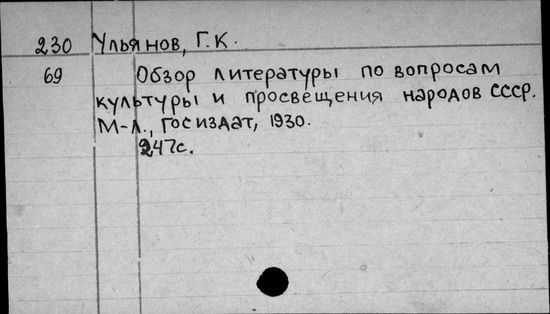 230 Ульянов, Г.К.
69 Обзор литературы по вопросам
культуры и просвещения народов СССР.
М-Л., Госиздат, 1930.
247с.